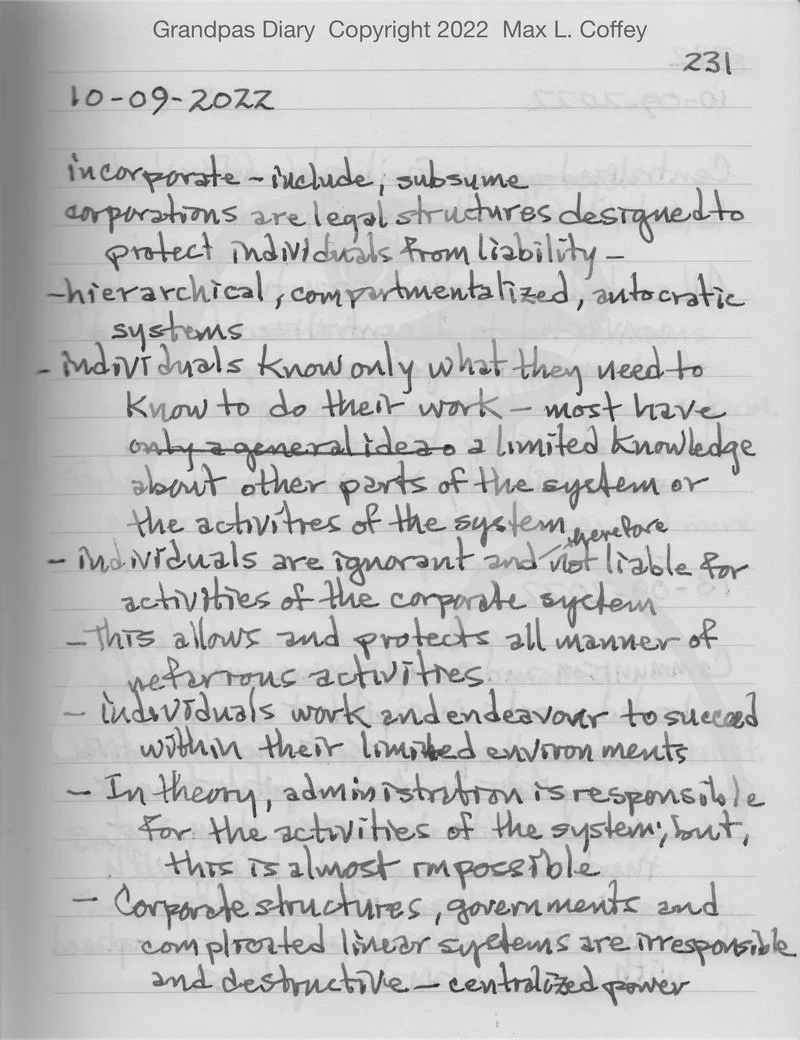 Grandpas Diary Copyright 2022 Max L. Coffey
231
10-09-2022
incorporate - include, subsume
corporations are legal structures designed to
protect individuals from liability -
- hierarchical, compartmentalized, autocratic
systems
- individuals know only what they need to
know to do their work - most have
only a general idea o a limited knowledge
about other parts of the system or
the activities of the system
therefore
- individuals are ignorant and not liable for
activities of the corporate system
- This allows and protects all manner of
nefarious activities.
- individuals work and endeavour to succeed
within their limited environments
- In theory, administration is responsible
for the activities of the system; but,
this is almost impossible
- Corporate structures, governments and
complicated linear systems are irresponsible
and destructive - centralized power